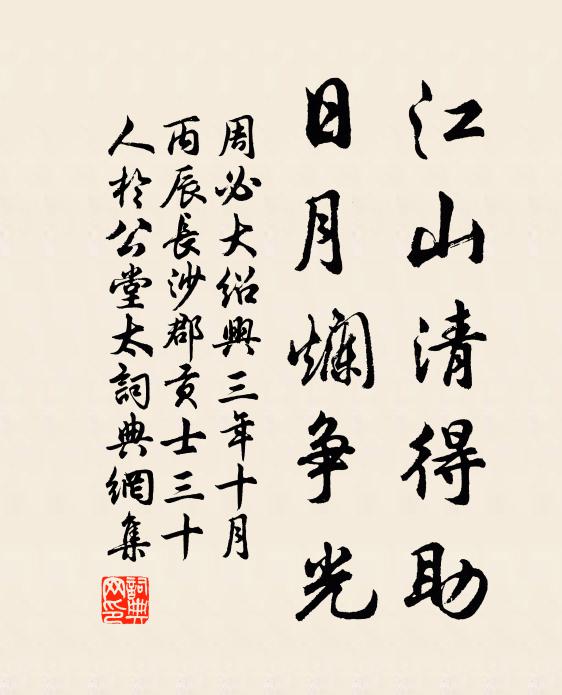 江山清得助
日月爛争光
周必大紹興三年十月
丙辰長沙郡貢士三十
人於公堂太詞典網集
詞典网印